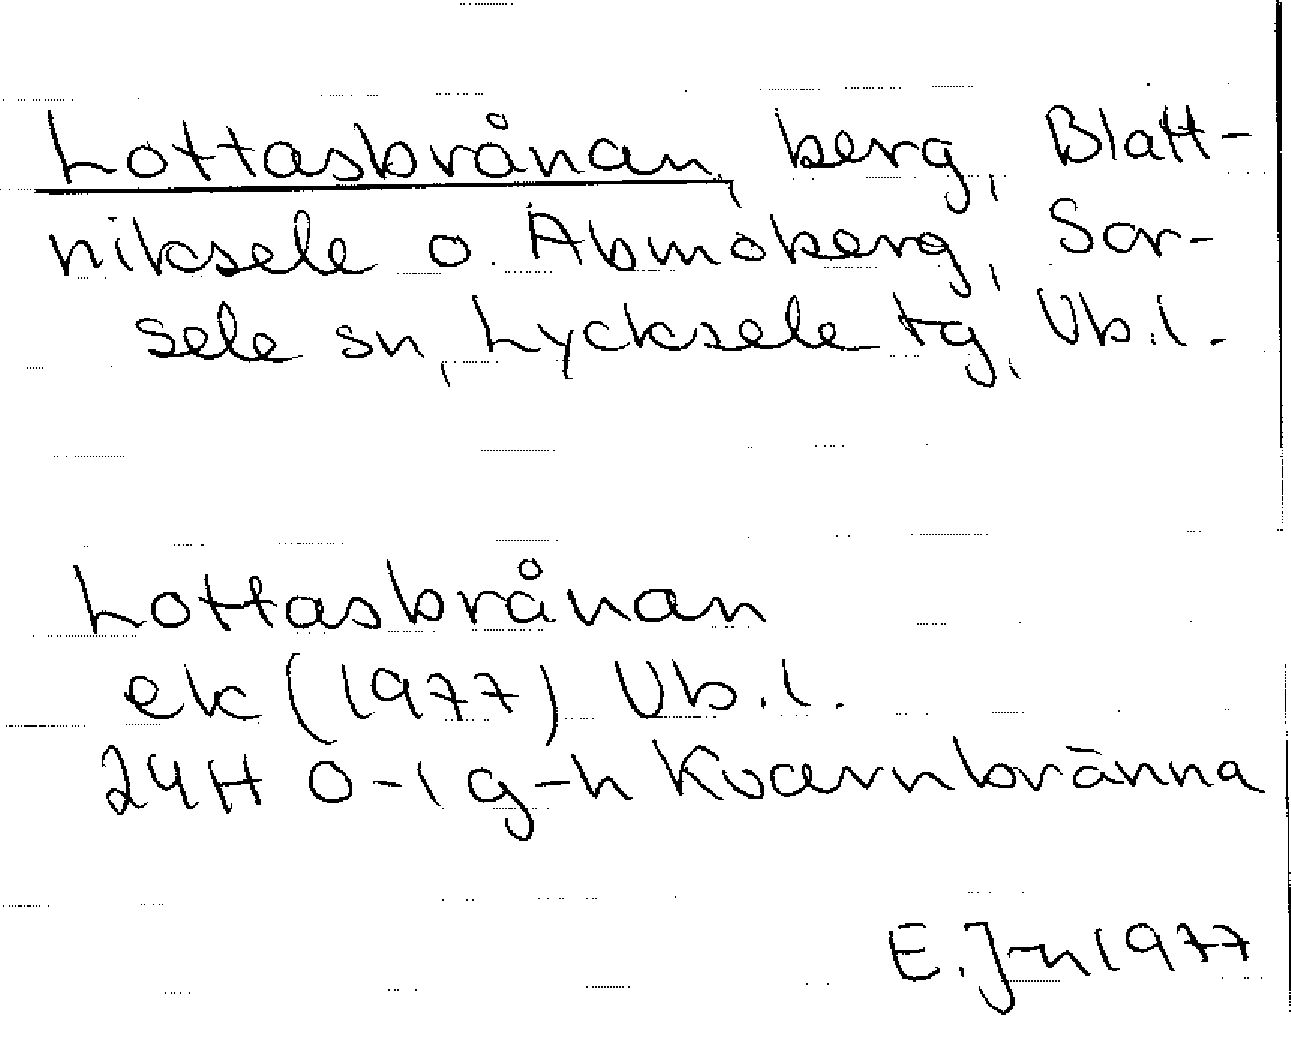 Lottasbrånan, berg, Blatt-
niksele o. Abmoberg, Sor-
sele sn, Lycksele tg, Vb.l.
Lottasbrånan
ek (1977) Vb.l.
24H 0-1 g-h Kvarnbränna
E. J-n 1977